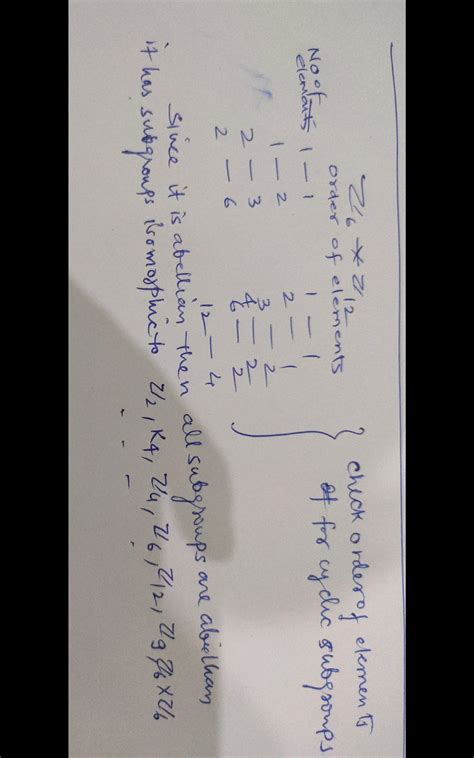 Z₆ × Z₁₂
No of elements order of elements
1 — 1 1 — 1
1 — 2 2 — 1
2 — 3 3 — 2
2 — 6 4 — 2
6 — 2
12 — 4
} check order of elements
for cyclic subgroups
Since it is abellian then all subgroups are abiellian
it has subgroups isomorphic to Z₂, K₄, Z₄, Z₆, Z₁₂, Z₃, Z₆ × Z₆